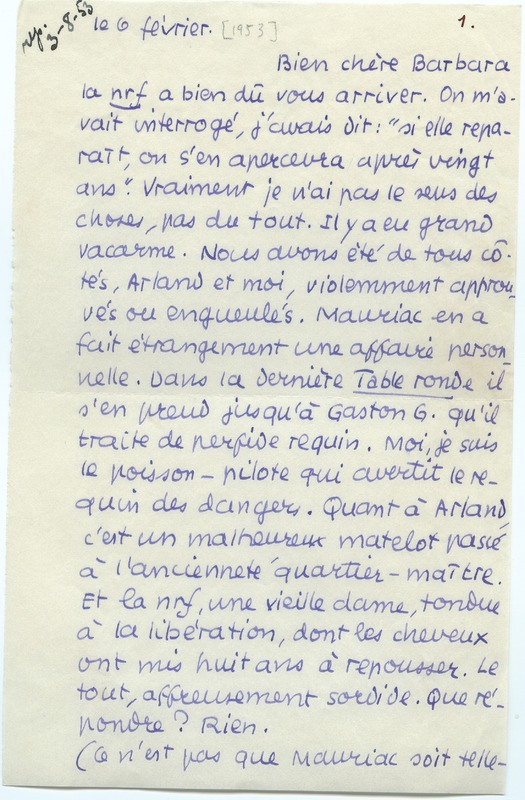 rép. 3-8-53
le 6 février. [1953]
1.
Bien chère Barbara
la nrf a bien dû vous arriver. On m'a-
vait interrogé, j'avais dit: "si elle repa-
raît, on s'en apercevra après vingt
ans". Vraiment je n'ai pas le sens des
choses, pas du tout. Il y a eu grand
vacarme. Nous avons été de tous cô-
tés, Arland et moi, violemment approu-
vés ou engueulés. Mauriac en a
fait étrangement une affaire person
nelle. Dans la dernière Table ronde il
s'en prend jusqu'à Gaston G. qu'il
traite de perfide requin. Moi, je suis
le poisson-pilote qui avertit le re-
quin des dangers. Quant à Arland,
c'est un malheureux matelot passé
à l'ancienneté quartier-maître.
Et la nrf, une vieille dame, tondue
à la libération, dont les cheveux
ont mis huit ans à repousser. Le
tout, affreusement sordide. Que ré-
pondre? Rien.
(Ce n'est pas que Mauriac soit telle-